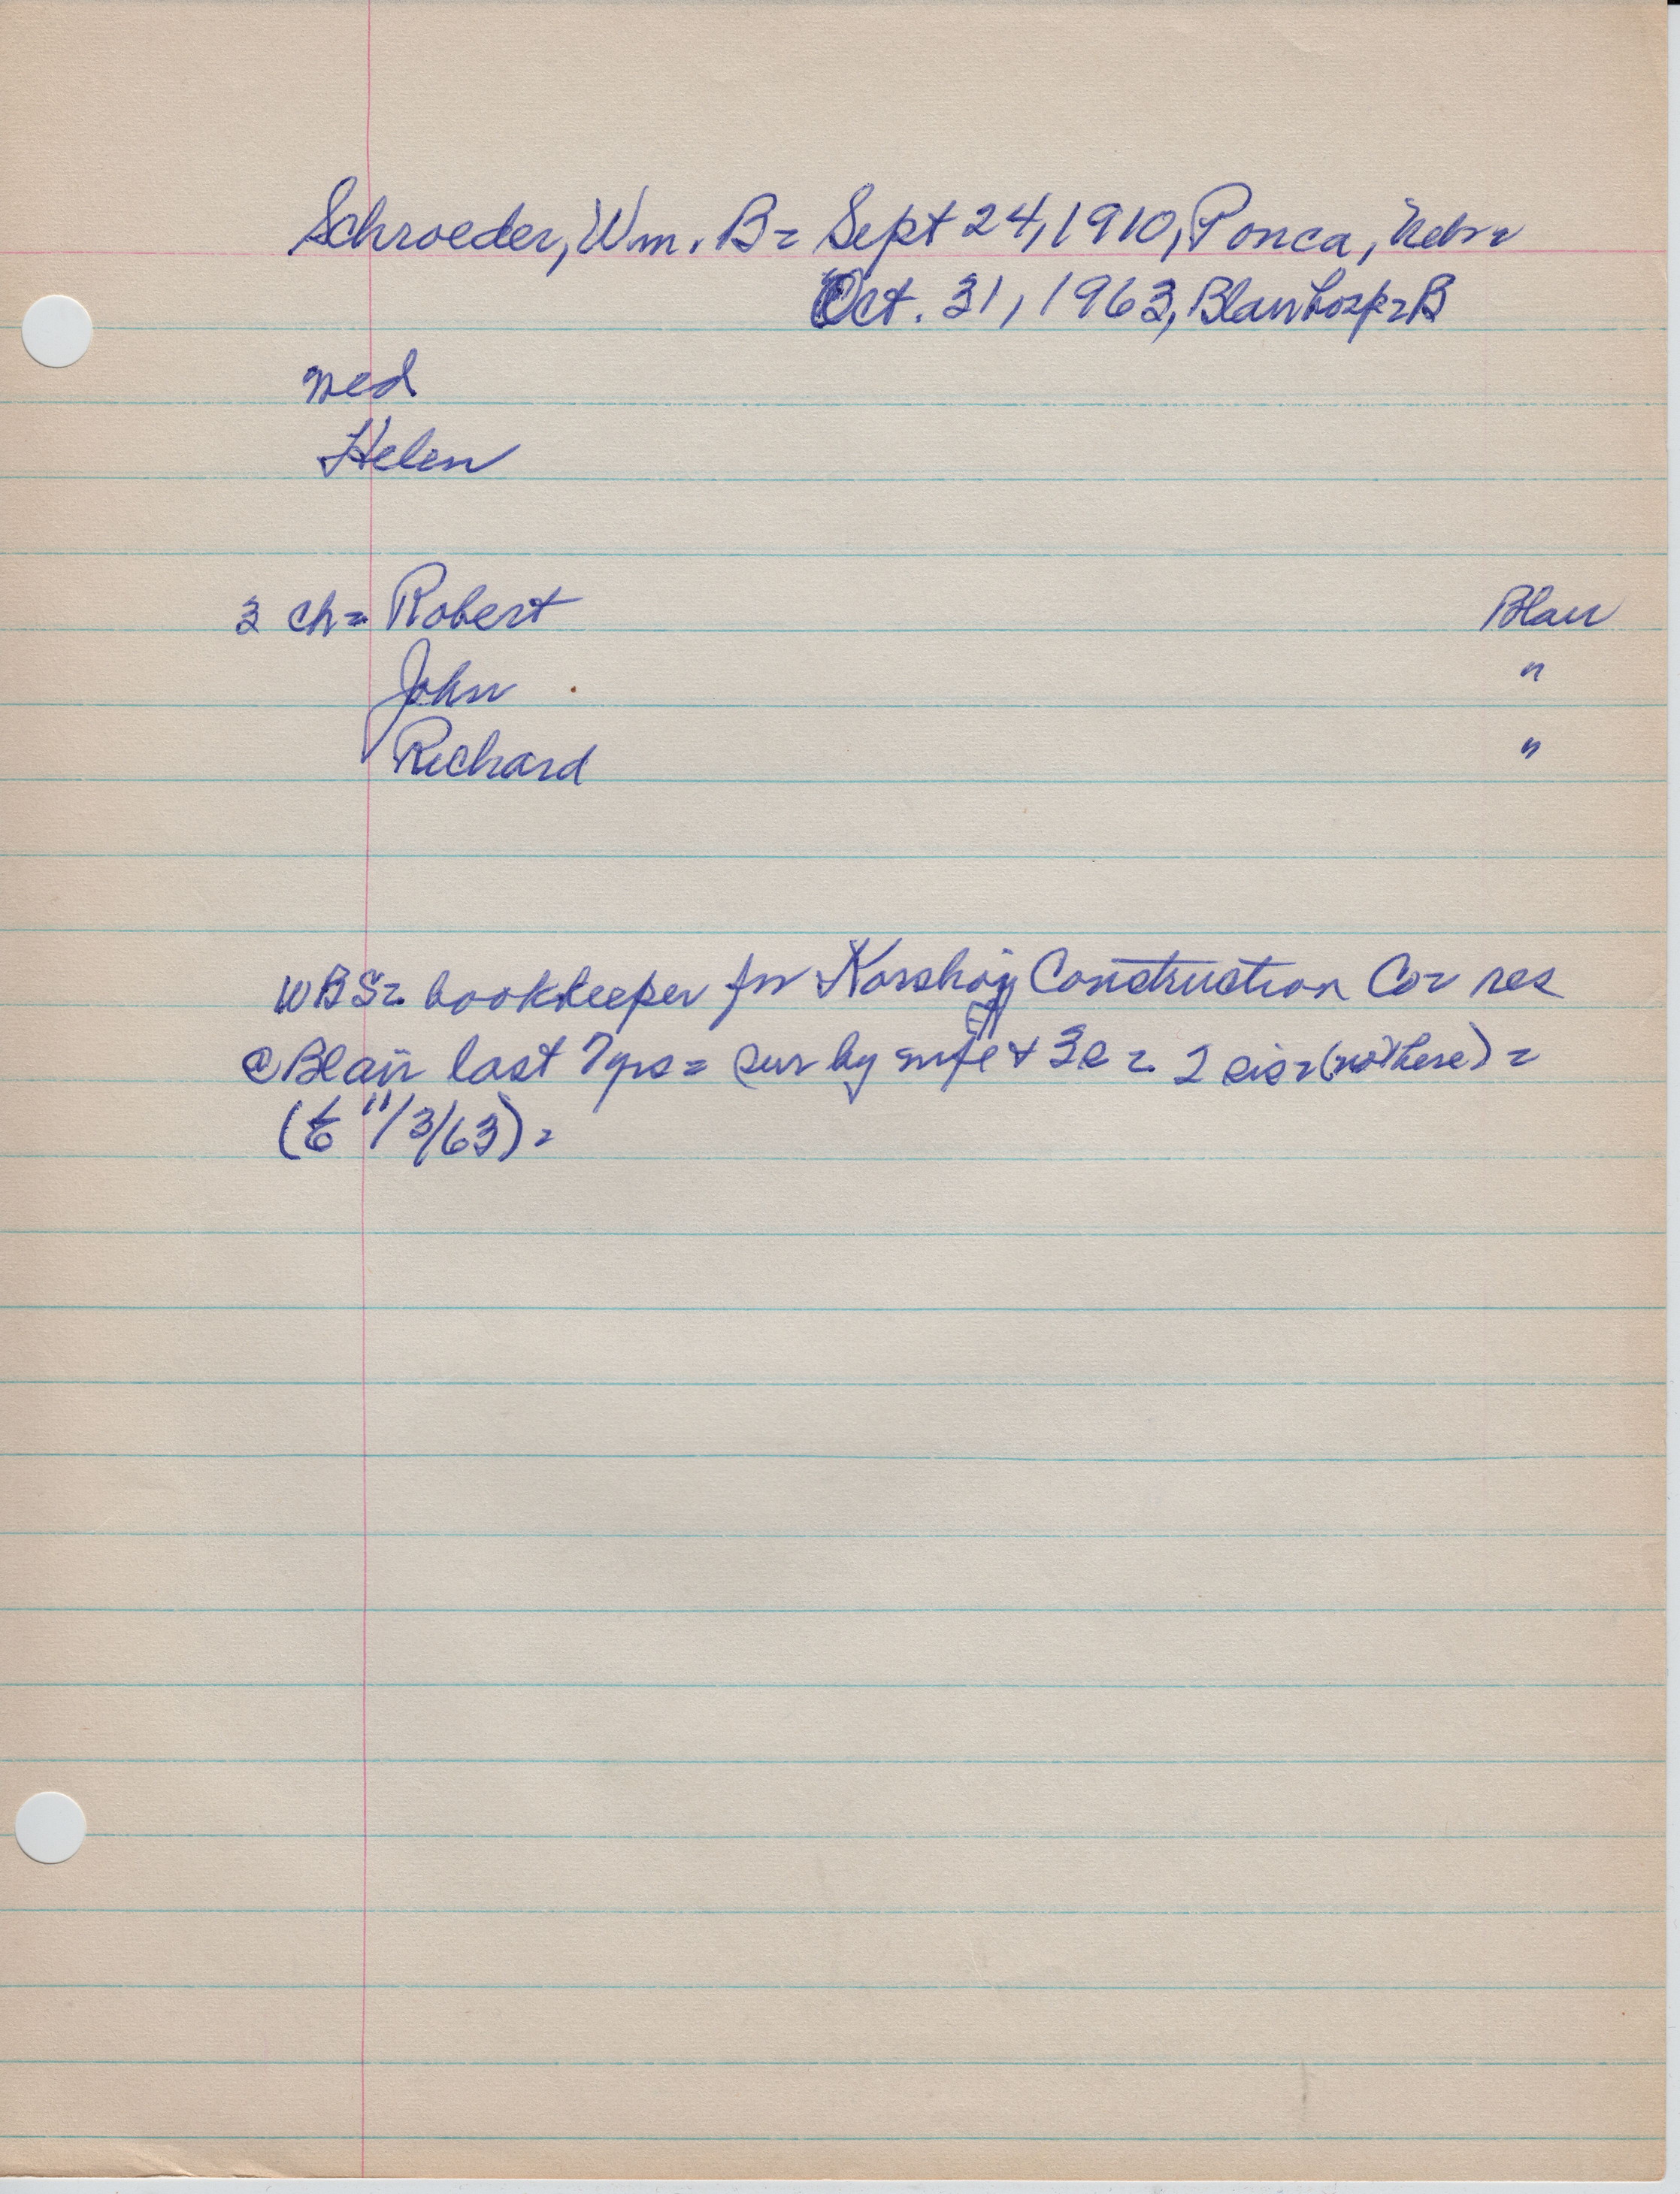 Schroeder, Wm. B = Sept 24, 1910, Ponca, Nebr =
Oct. 31, 1963, Blair hosp = B
med
Helen
3 ch = Robert Blair
John "
Richard "
WBS = bookkeeper for Korshoj Construction Co = res
@ Blair last 7 yrs = sur by wife + 3 s = 2 sis = (not here) =
(E 11/3/63) =